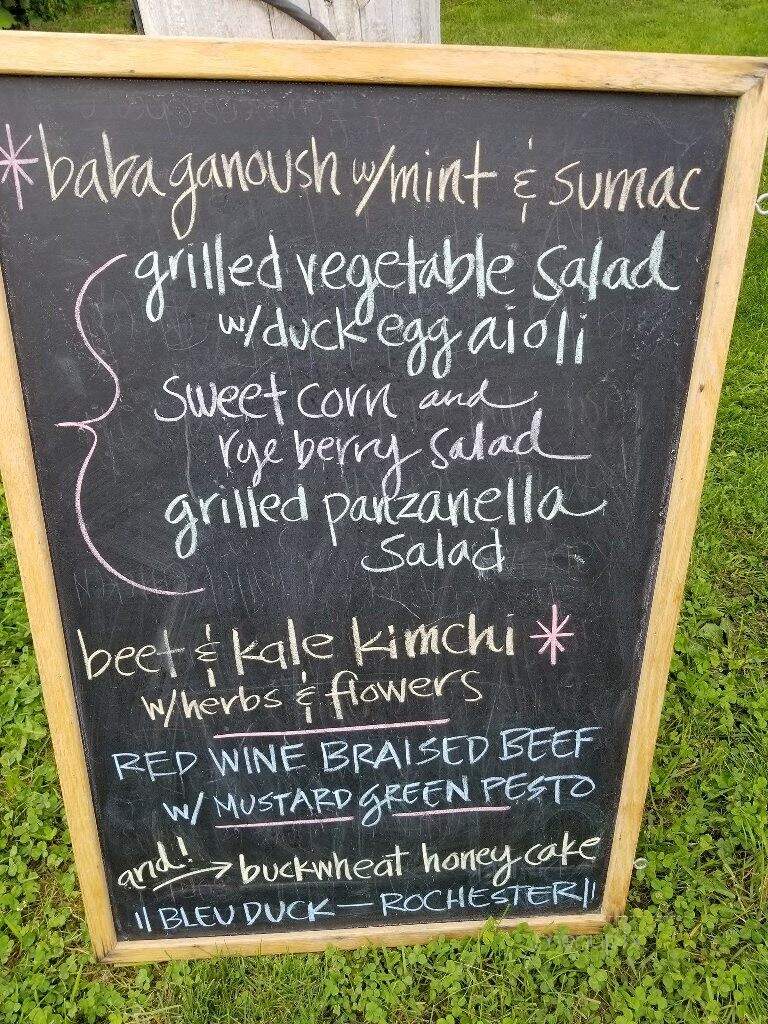 *baba ganoush w/mint & sumac
grilled vegetable salad
w/duck egg aioli
sweet corn and
rye berry salad
grilled panzanella
salad
beet & kale kimchi *
w/herbs & flowers
RED WINE BRAISED BEEF
w/ MUSTARD GREEN PESTO
and! → buckwheat honey cake
|| BLEU DUCK — ROCHESTER ||